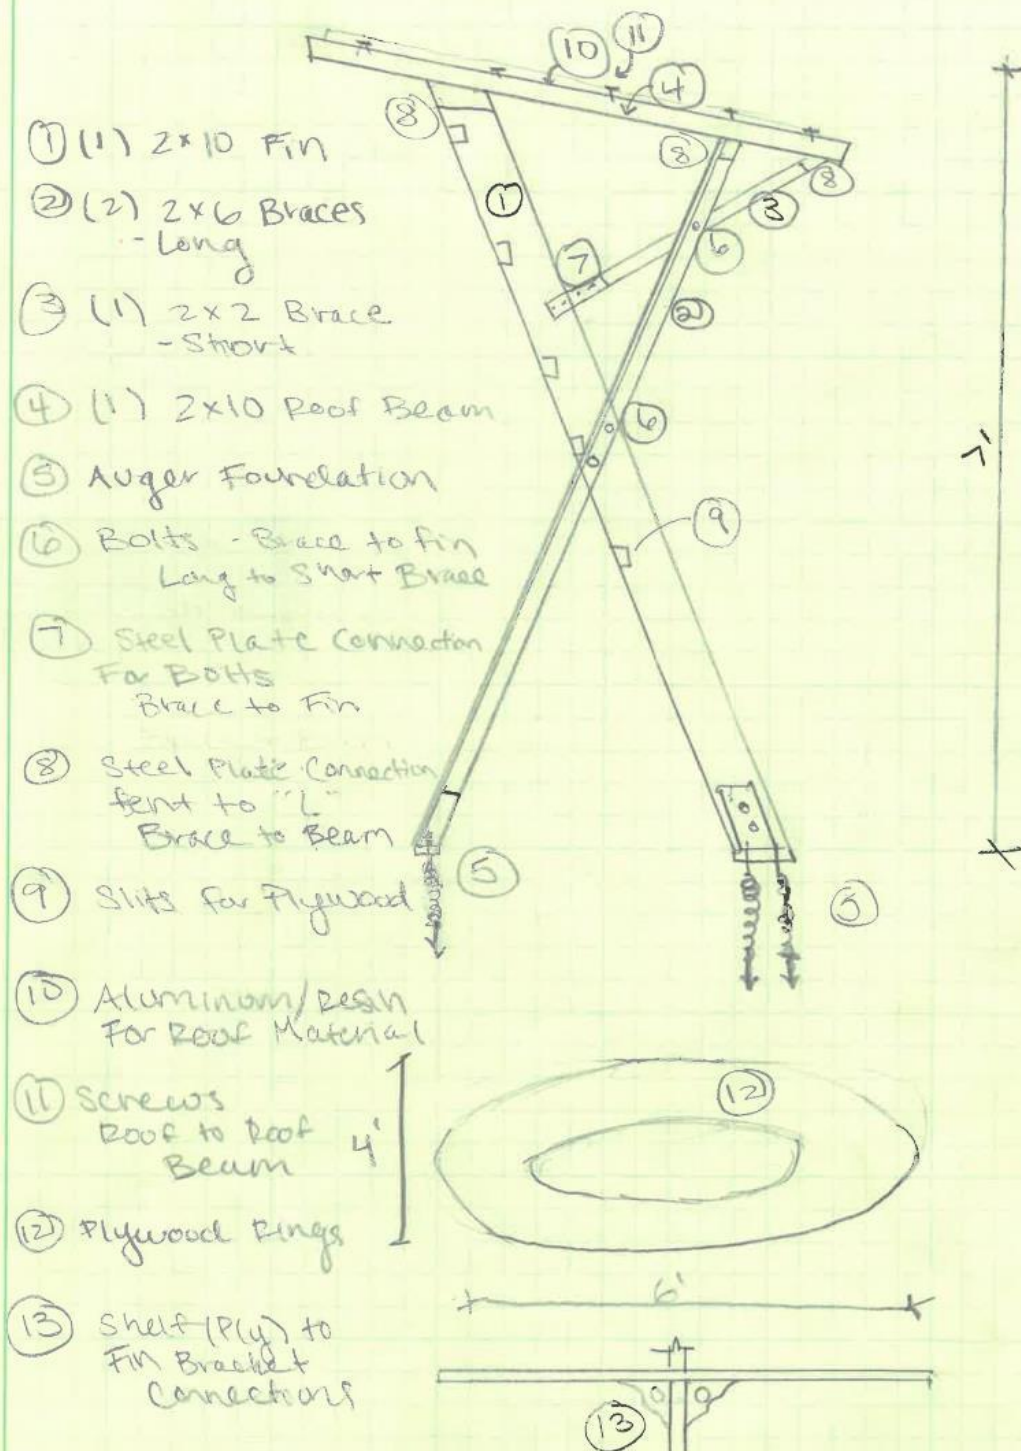 ① (1) 2x10 Fin
② (2) 2x6 Braces
- Long
③ (1) 2x2 Brace
- Short
④ (1) 2x10 Roof Beam
⑤ Auger Foundation
⑥ Bolts - Brace to fin
Long to Short Brace
⑦ Steel Plate Connection
For Bolts
Brace to Fin
⑧ Steel Plate Connection
Bent to "L"
Brace to Beam
⑨ Slits for Plywood
⑩ Aluminum/Resin
For Roof Material
⑪ Screws
Roof to Roof
Beam
⑫ Plywood Rings
⑬ Shelf (Ply) to
Fin Bracket
Connections
⑩ ⑪
④
⑧ ⑧ ⑧
① ③
⑦ ⑥
②
⑥
7'
⑨
⑤ ⑤
⑫
4'
6'
⑬